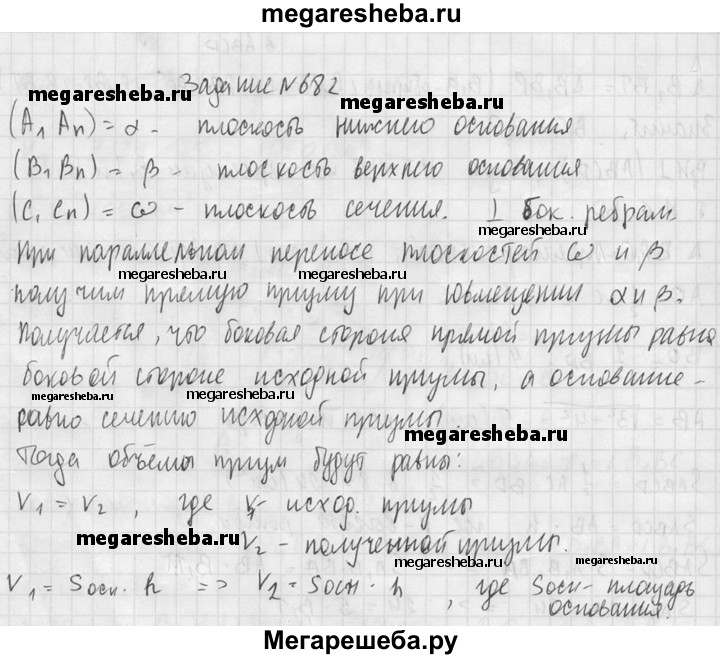 megaresheba.ru
Задание №682
megaresheba.ru megaresheba.ru
(A₁ Aₙ) = α - плоскость нижнего основания
(B₁ Bₙ) = β - плоскость верхнего основания
megaresheba.ru
(C₁ Cₙ) = ω - плоскость сечения. ⊥ бок. ребрам.
megaresheba.ru
При параллельном переносе плоскостей ω и β
megaresheba.ru megaresheba.ru
получим прямую призму при совмещении α и β.
Получается, что боковая сторона прямой призмы равна
megaresheba.ru
боковой стороне исходной призмы, а основание -
megaresheba.ru
равно сечению исходной призмы.
megaresheba.ru
Тогда объёмы призм будут равны:
V₁ = V₂, где V₁- исход. призмы
megaresheba.ru
V₂ - полученной призмы.
megaresheba.ru
V₁ = Sосн · h => V₂ = Sосн · h, где Sосн - площадь
основания.
megaresheba.ru
Мегарешеба.ру